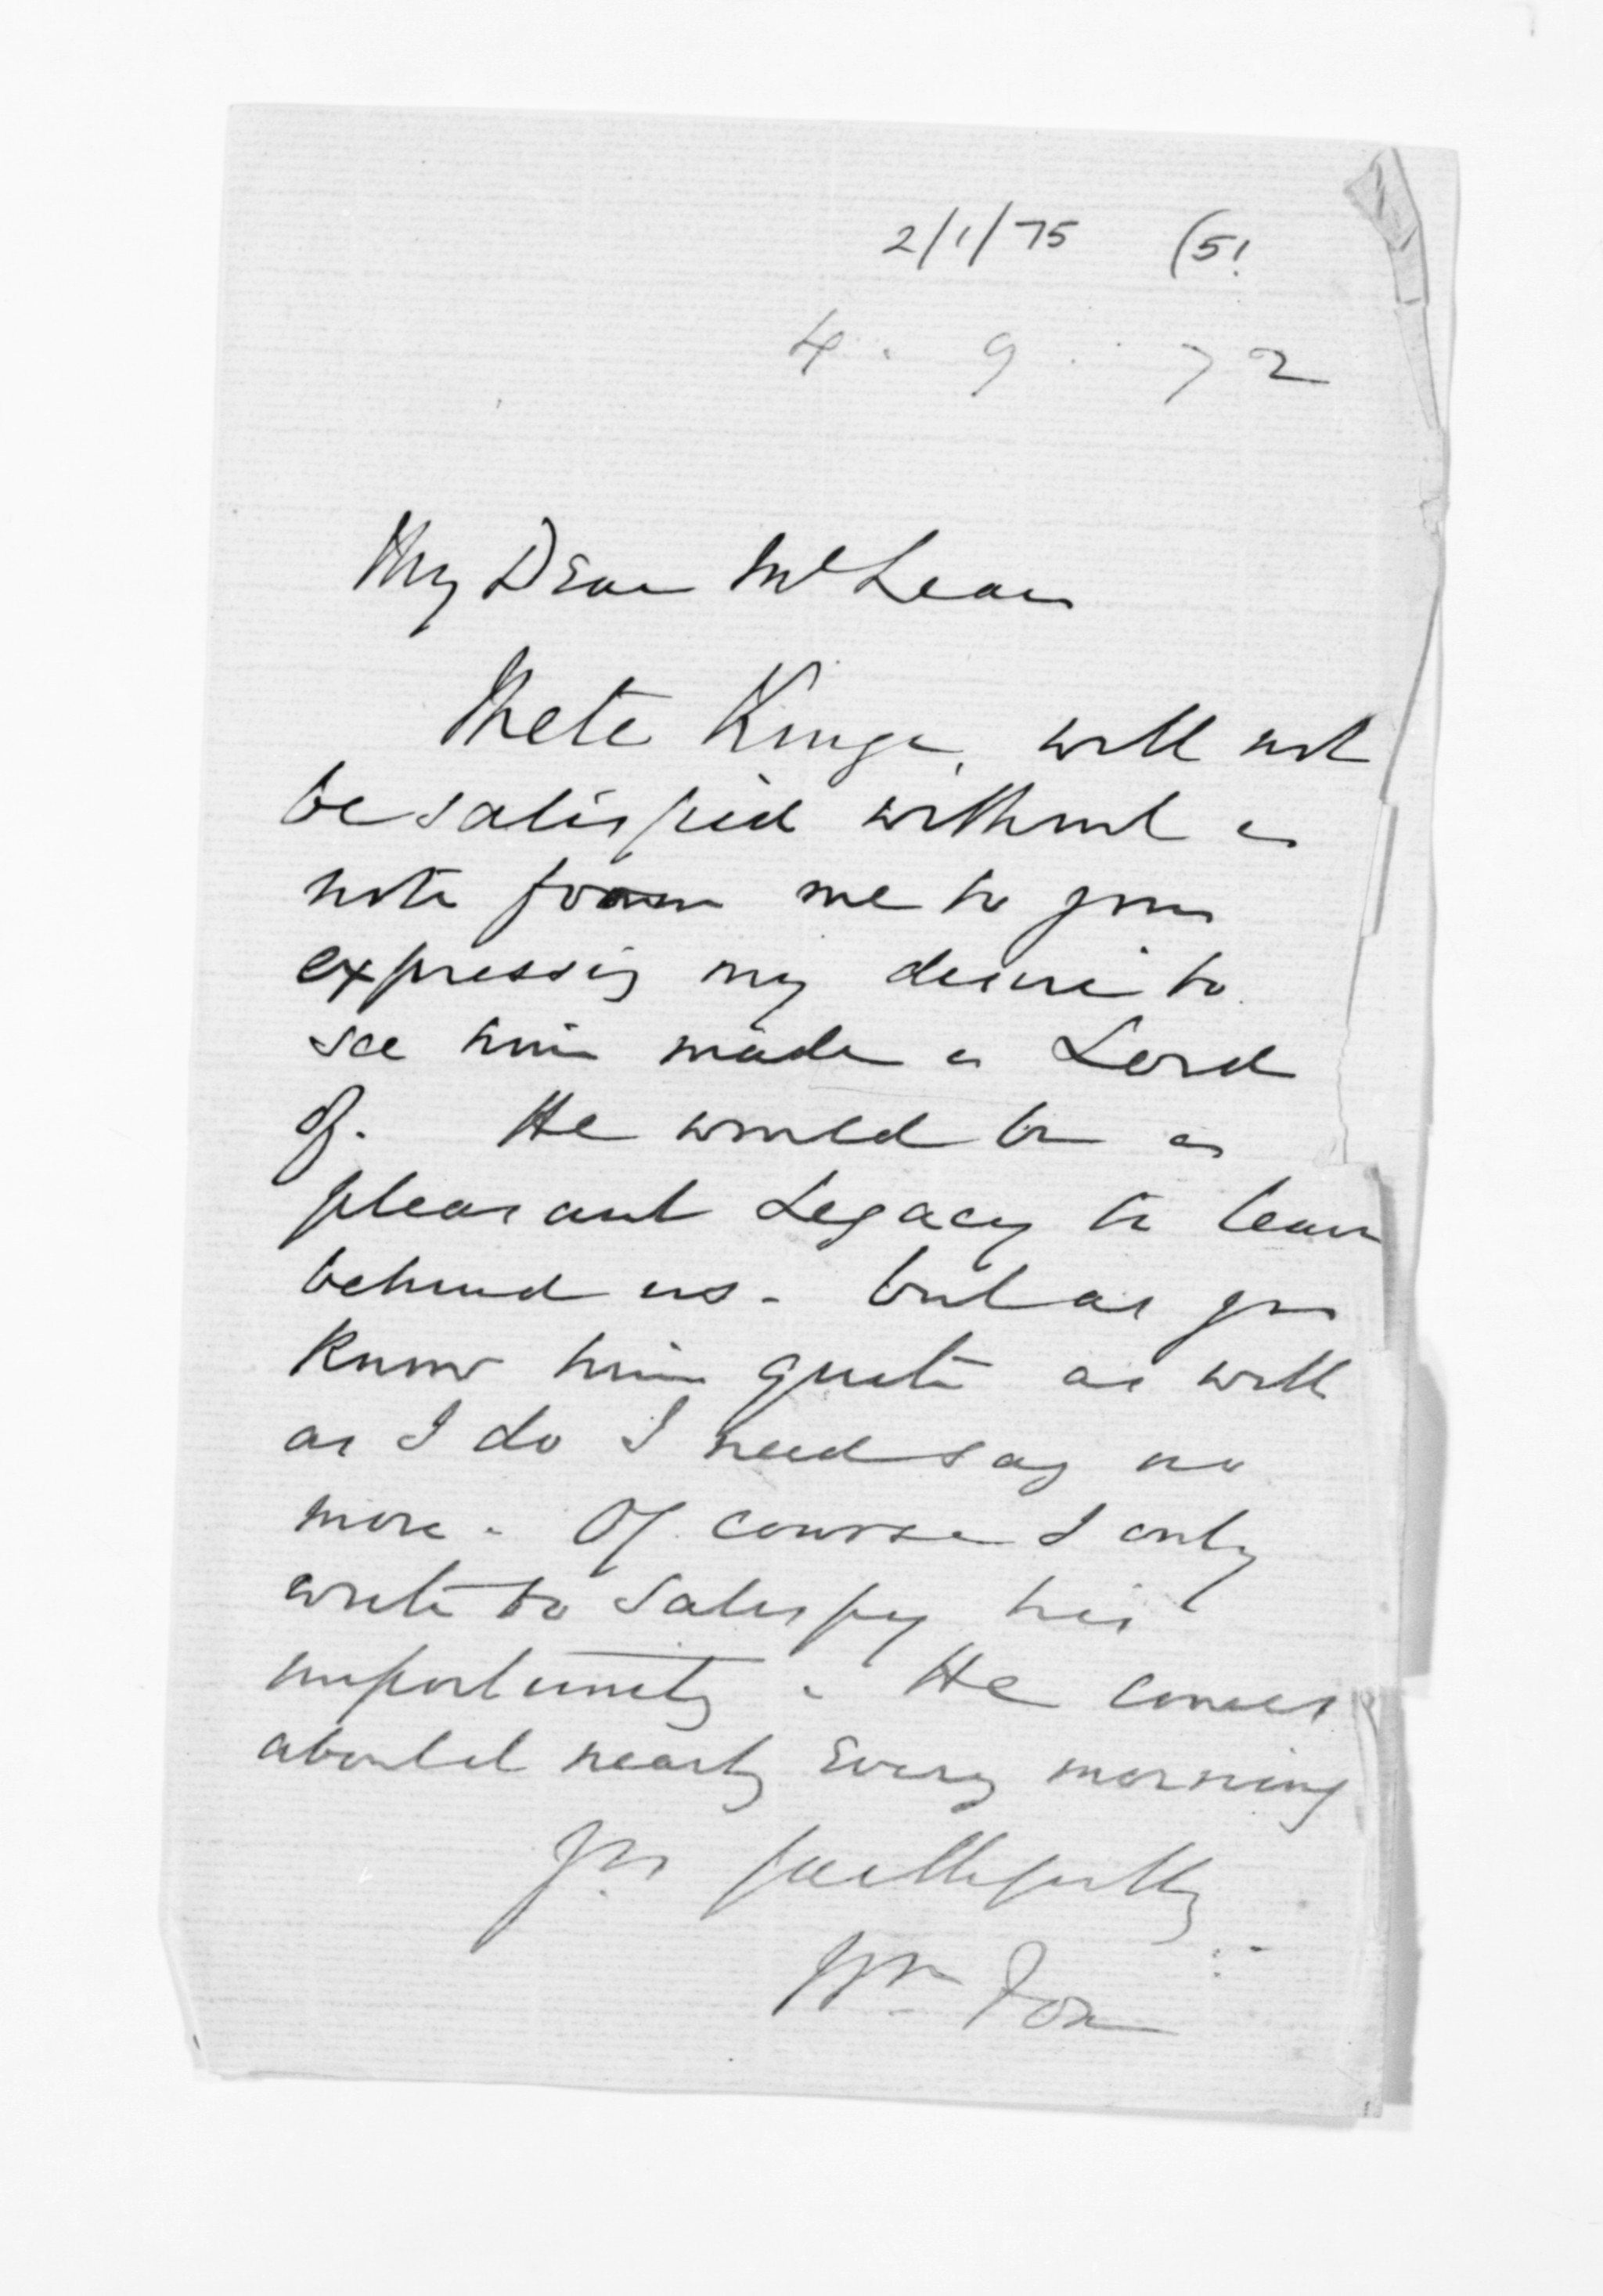 2/1/75 (5!
4. 9. 72
My Dear McLean
Mete Kingi, will not
be satisfied without a
note from me to you
expressing my desire to
see him made a Lord
of. He would be a
pleasant Legacy to leave
behind us. but as you
know him quite as well
as I do I need say no
more. Of course I only
write to satisfy his
importunity. He comes
about nearly every morning
Yrs faithfully
Wm Fox